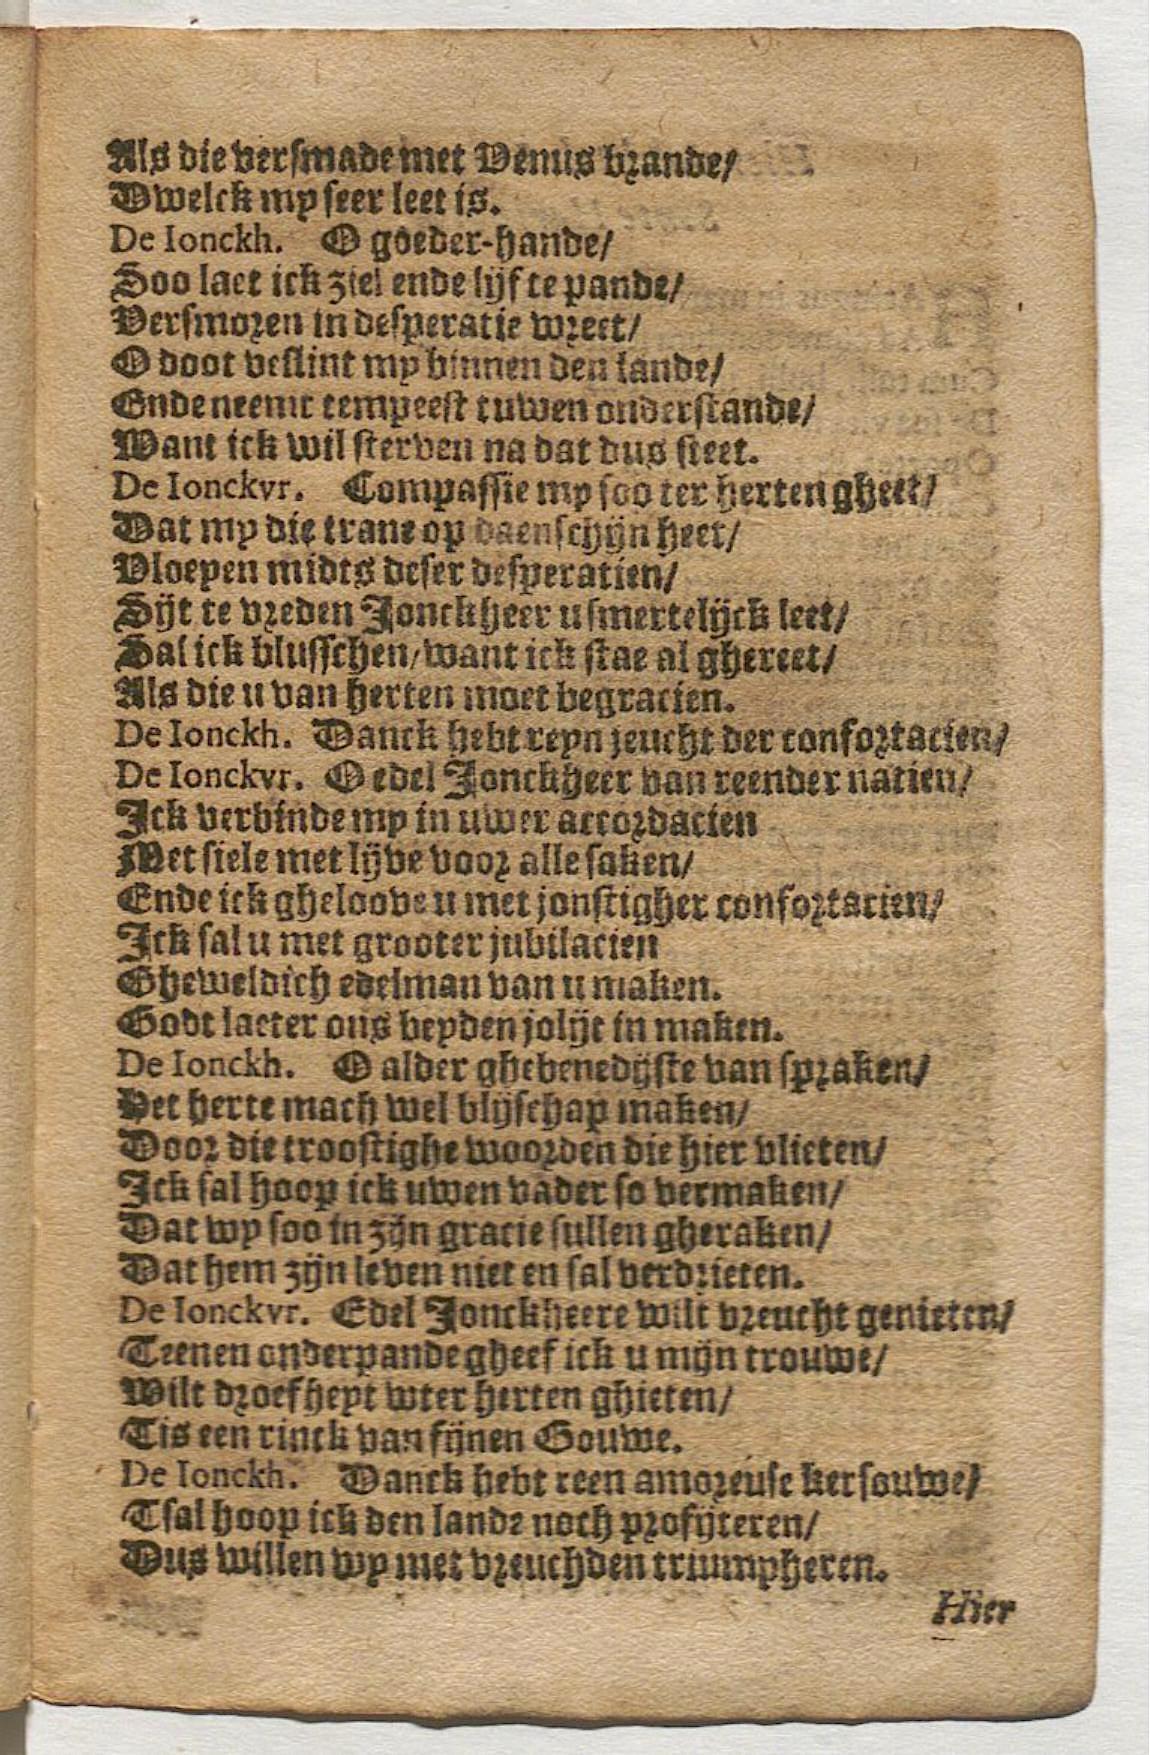 Als die versmade met Venus brande/
Dwelck my seer leet is.
De Ionckh. O goeder-hande/
Soo laet ick ziel ende lijf te pande/
Versmoren in desperatie wreet/
O doot veslint my binnen den lande/
Ende neemt tempeest tuwen onderstande/
Want ick wil sterven na dat dus steet.
De Ionckvr. Compassie my soo ter herten gheet/
Dat my die trane op daenschijn heet/
Vloeyen midts deser desperatien/
Sijt te vreden Jonckheer u smertelijck leet/
Sal ick blusschen/want ick stae al ghereet/
Als die u van herten moet begracien.
De Ionckh. Danck hebt reyn jeucht der confortacien/
De Ionckvr. O edel Jonckheer van reender natien/
Ick verbinde my in uwer accordacien
Met siele met lijve voor alle saken/
Ende ick gheloove u met jonstigher confortacien/
Ick sal u met grooter jubilacien
Gheweldich edelman van u maken.
Godt laeter ons beyden jolijt in maken.
De Ionckh. O alder ghebenedijste van spraken/
Het herte mach wel blijschap maken/
Door die troostighe woorden die hier vlieten/
Ick sal hoop ick uwen vader so vermaken/
Dat wy soo in zijn gracie sullen gheraken/
Dat hem zijn leven niet en sal verdrieten.
De Ionckvr. Edel Jonckheere wilt vreucht genieten/
Teenen onderpande gheef ick u mijn trouwe/
Wilt droefheyt wter herten ghieten/
Tis een rinck van fijnen Gouwe.
De Ionckh. Danck hebt reen amoreuse kersouwe/
Tsal hoop ick den lande noch profijteren/
Dus willen wy met vreuchden triumpheren.
Hier